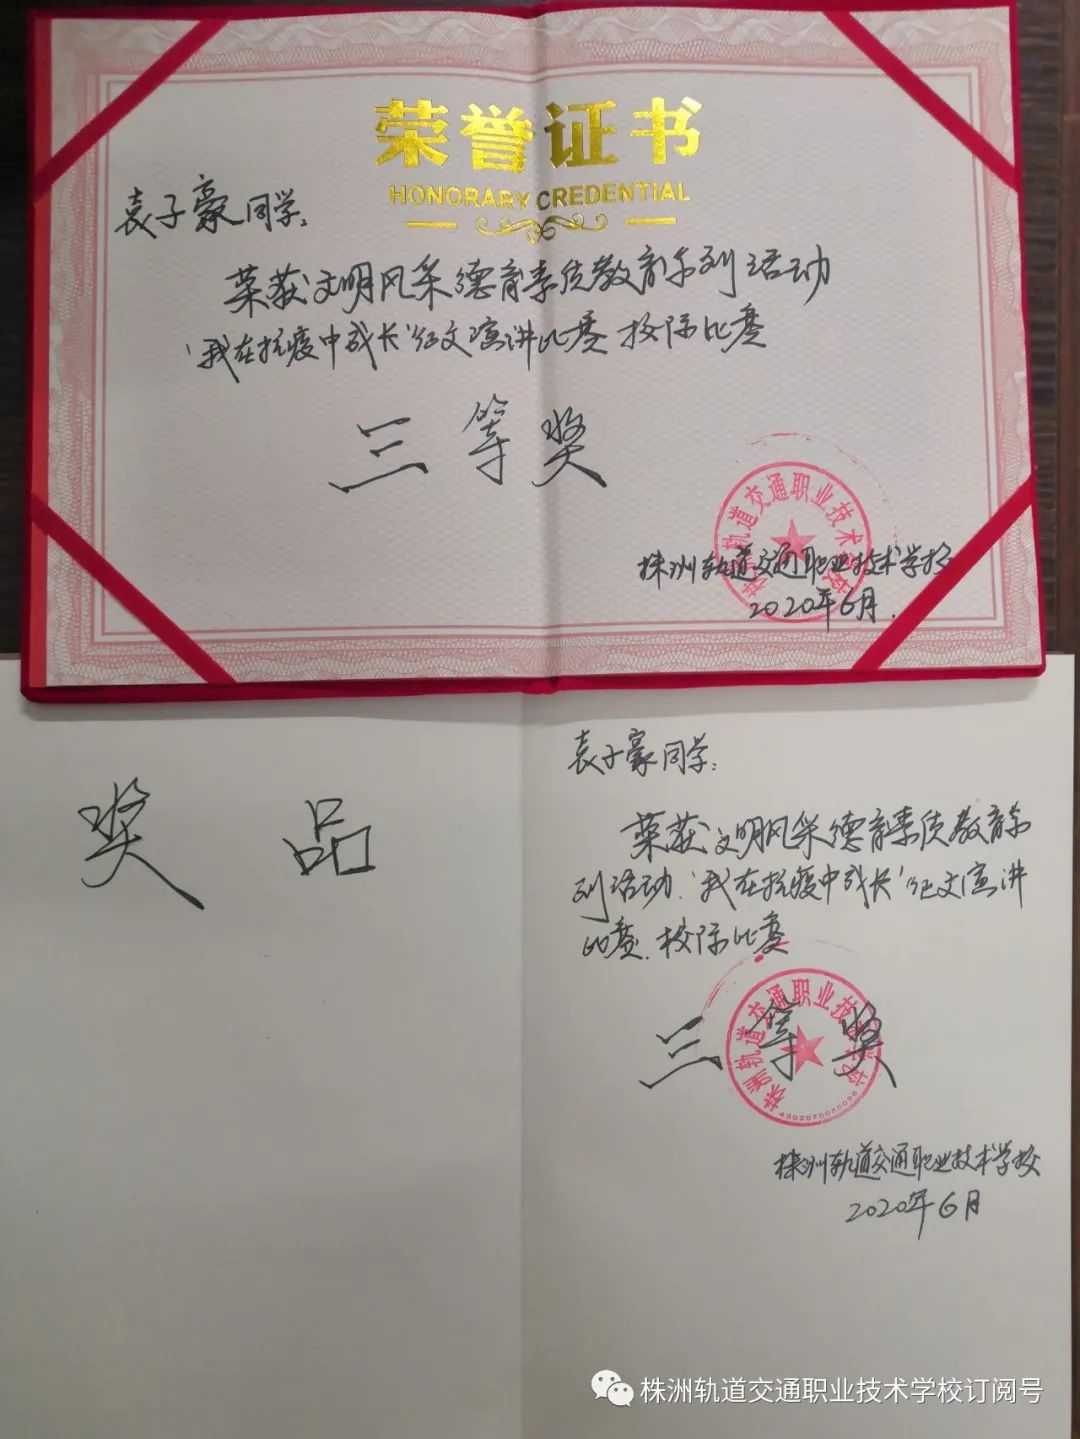 荣誉证书
HONORARY CREDENTIAL
袁子豪同学:
荣获文明风采德育素质教育系列活动
"我在抗疫中成长"征文演讲比赛校际比赛
三等奖
株洲轨道交通职业技术学校
株洲轨道交通职业技术学校
2020年6月.
奖品
袁子豪同学:
荣获文明风采德育素质教育系
列活动.'我在抗疫中成长'征文演讲
比赛.校际比赛
三等奖
株洲轨道交通职业技术学校
株洲轨道交通职业技术学校
2020年6月
株洲轨道交通职业技术学校订阅号